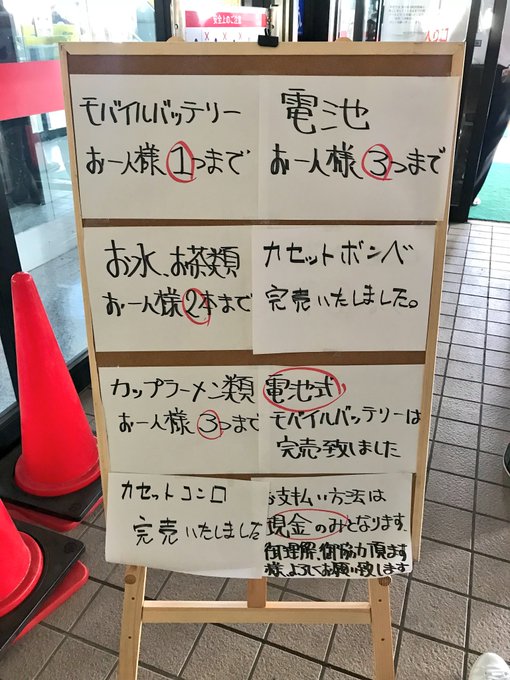 安全上のご注意
モバイルバッテリー
お一人様1つまで
電池
お一人様3つまで
お水、お茶類
お一人様2本まで
カセットボンベ
完売いたしました。
カップラーメン類
お一人様3つまで
電池式
モバイルバッテリーは
完売致しました
カセットコンロ
完売いたしました
お支払い方法は
現金のみとなります。
御理解、御協力頂ます
様、よろしくお願い致します